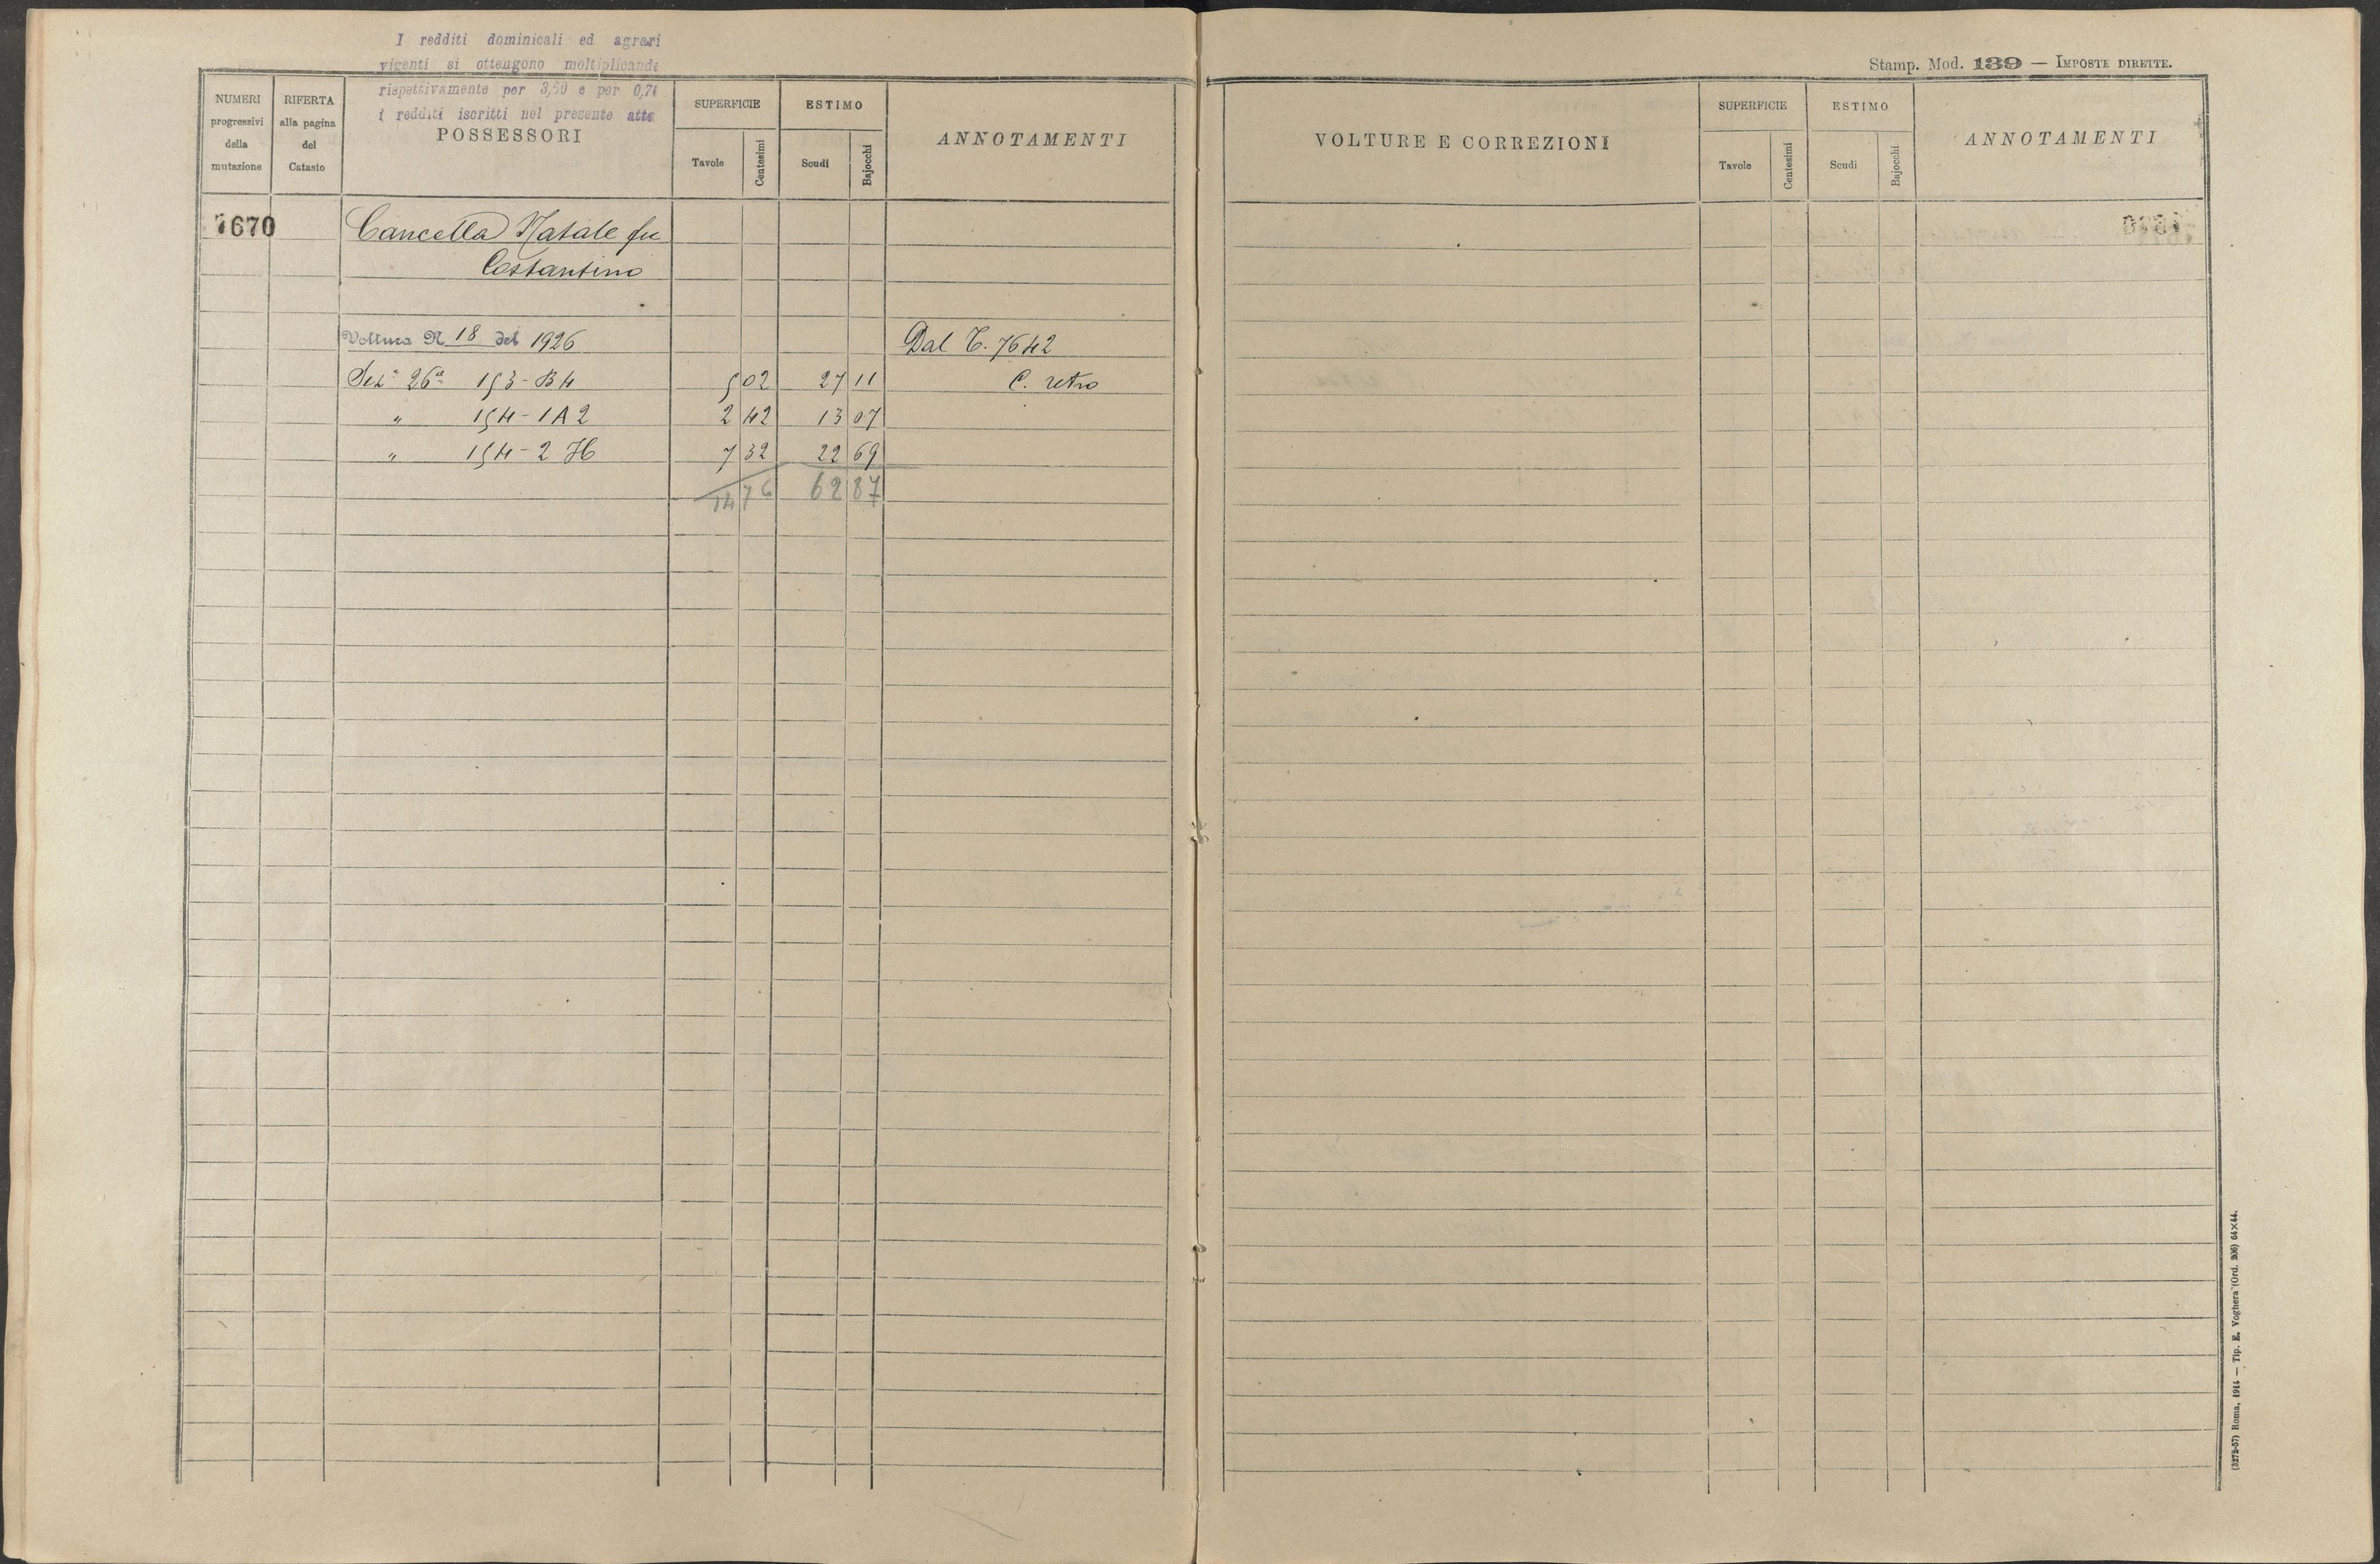 I redditi dominicali ed agrari
vigenti si ottengono moltiplicando
rispettivamente per 3,50 e per 0,71
i redditi iscritti nel presente atto
NUMERI progressivi della mutazione
RIFERTA alla pagina del Catasto
POSSESSORI
SUPERFICIE
Tavole Centesimi
ESTIMO
Scudi Bajocchi
ANNOTAMENTI
7670 Cancella Natale fu
Costantino
Voltura N 18 del 1926 Dal C. 7642
Sez.e 26a 153-B4 5 02 27 11 C. retro
" 154-1A2 2 42 13 07
" 154-2 H 7 32 22 69
14 76 62 87
Stamp. Mod. 139 — IMPOSTE DIRETTE.
VOLTURE E CORREZIONI
SUPERFICIE
Tavole Centesimi
ESTIMO
Scudi Bajocchi
ANNOTAMENTI
(3272-57) Roma, 1914 — Tip. E. Voghera (Ord. 206) 64×44.